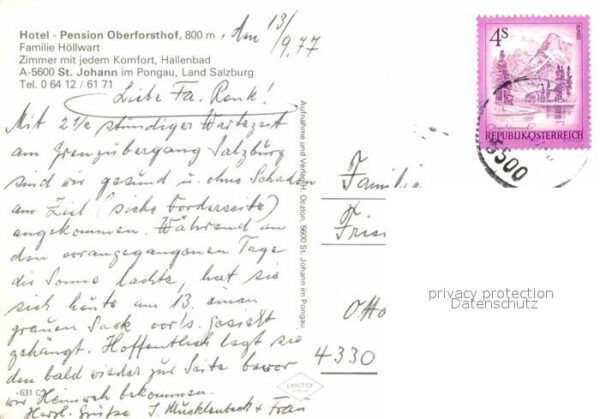 Hotel - Pension Oberforsthof, 800 m
Familie Höllwart
Zimmer mit jedem Komfort, Hallenbad
A-5600 St. Johann im Pongau, Land Salzburg
Tel. 0 64 12 / 61 71
, den 13/9.77
Liebe Fa. Renk!
Mit 2 1/2 stündiger Wartezeit
am Grenzübergang Salzburg
sind wir gesund u. ohne Schaden
am Ziel (siehe Vorderseite)
angekommen. Während an
den vorangegangenen Tage
die Sonne lachte, hat sie
sich heute am 13. einen
grauen Sack vor's Gesicht
gehängt. Hoffentlich legt sie
den bald wieder zur Seite bevor
wir Heimweh bekommen.
Herzl. Grüße J. Mucklenbeck + Frau
631 C
Aufnahme und Verlag H. Oczlon, 5600 St. Johann im Pongau
pechal
4S
ALMSEE
REPUBLIK ÖSTERREICH
5600
Familie
Otto
4330
privacy protection
Datenschutz